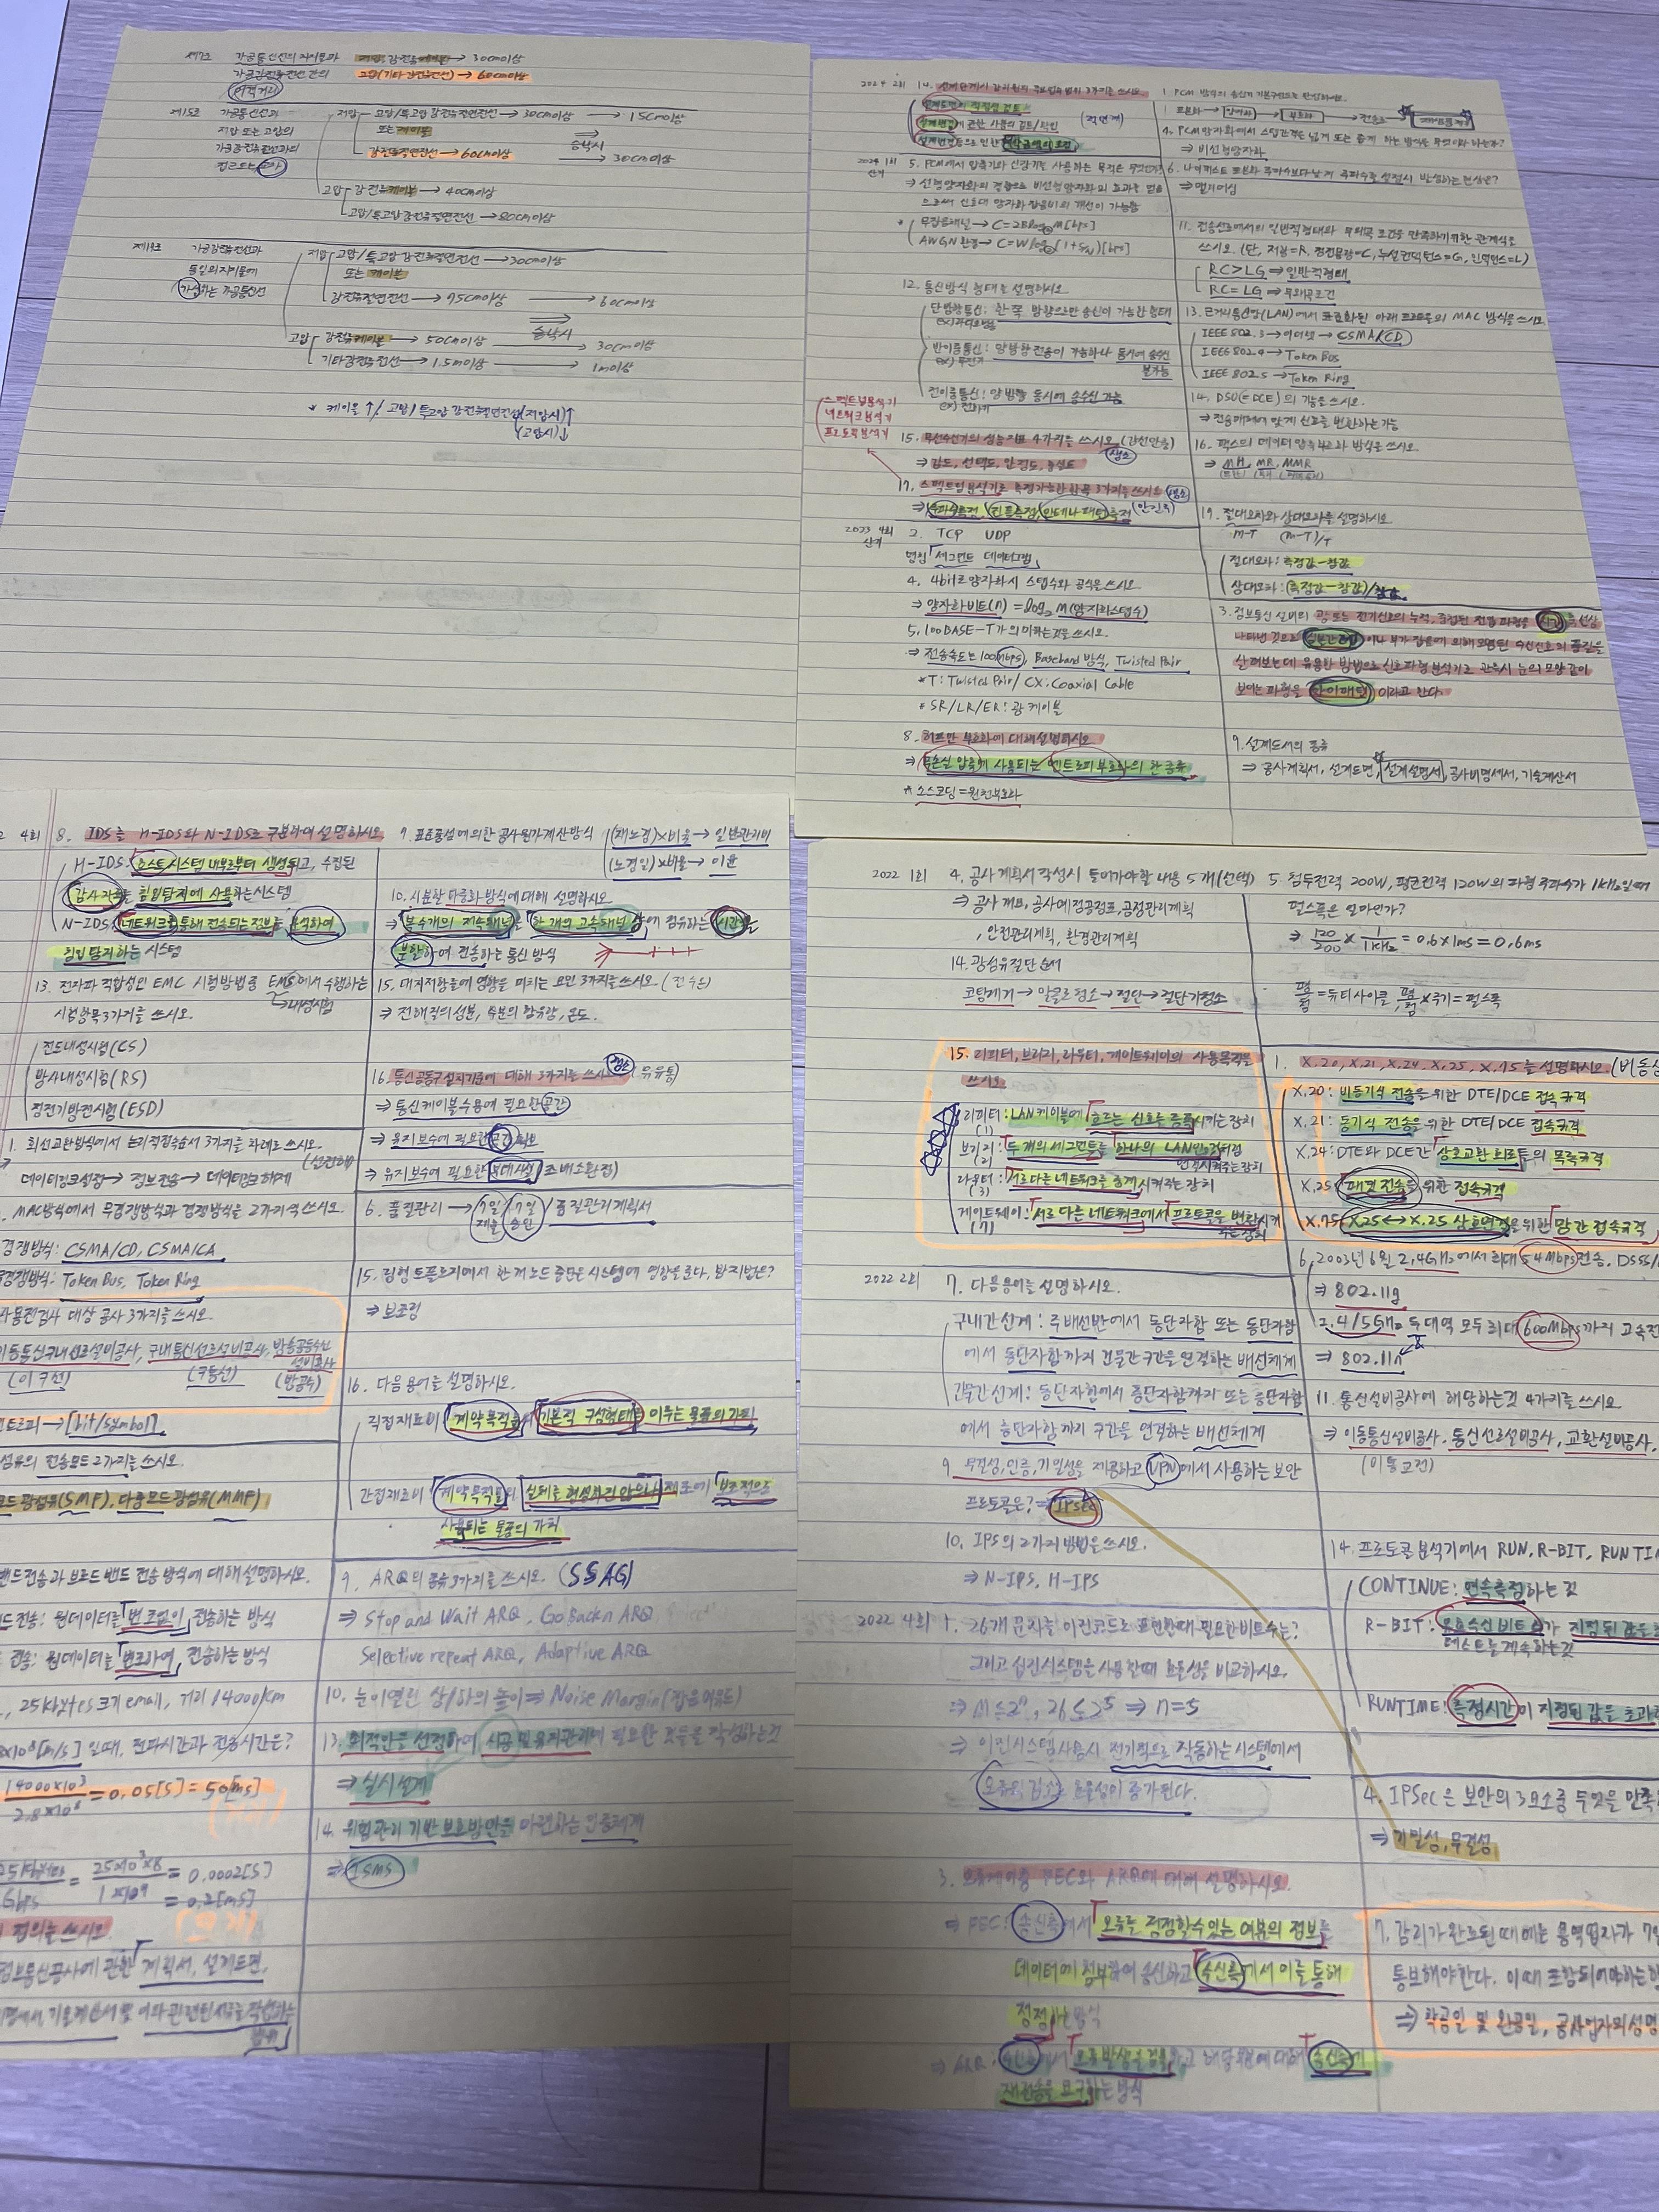 제7조 가공통신선의 지지물과 저압, 강전류케이블 → 30cm이상
가공강전류전선 간의 고압(기타 강전류전선) → 60cm이상
이격거리
제15조 가공통신선과 저압 고압/특고압 강전류절연전선 → 30cm이상 → 15cm이상
저압 또는 고압의 또는 케이블
가공강전류전선과의 강전류절연전선 → 60cm이상 승낙시 → 30cm이상
접근또는
고압 강전류케이블 → 40cm이상
고압/특고압 강전류절연전선 → 80cm이상
제18조 가공강전류전선과 저압 고압/특고압 강전류절연전선 → 30cm이상
동일의 지지물에 또는 케이블
가설하는 가공통신선 강전류절연전선 → 75cm이상 → 60cm이상
승낙시
고압 강전류케이블 → 50cm이상 → 30cm이상
기타강전류전선 → 1.5m이상 → 1m이상
* 케이블↑ / 고압/특고압 강전류절연전선 (저압시)↑
(고압시)↓
2024 2회
설계도면의 적정성 검토
설계변경에 관한 사항의 검토/확인
2024 1회 산기 5. PCM에서 압축기와 신장기를 사용하는 목적은 무엇인가?
⇒ 선형양자화의 결합으로 비선형양자화의 효과를 얻음
으로써 신호대 양자화 잡음비의 개선이 가능함
* 무잡음채널 → C=2Blog₂M[bps]
AWGN환경 → C=Wlog₂[1+S/N][bps]
12. 통신방식 형태를 설명하시오.
단방향통신: 한 쪽 방향으로만 송신이 가능한 형태
반이중통신: 양방향 전송이 가능하나 동시에 송수신
불가능
ex) 무전기
전이중통신: 양방향 동시에 송수신 가능
ex) 전화기
스펙트럼분석기
네트워크분석기
프로토콜분석기
15. 무선수신기의 성능지표 4가지를 쓰시오. (감선안충)
⇒ 감도, 선택도, 안정도, 충실도
17. 스펙트럼분석기로 측정가능한 항목 3가지를 쓰시오
⇒ 주파수측정, 진폭측정, 안테나 패턴측정
2023 4회 산기 2. TCP UDP
명칭 세그먼트 데이터그램
4. 4bit로 양자화시 스텝수와 공식을 쓰시오.
⇒ 양자화비트(n) = log₂ M(양자화스텝수)
5. 100BASE-T가 의미하는것을 쓰시오.
⇒ 전송속도는 100Mbps, Baseband 방식, Twisted Pair
* T: Twisted Pair / CX: Coaxial Cable
* SR/LR/ER: 광케이블
8. 허프만 부호화에 대해 설명하시오
⇒ 무손실 압축에 사용되는 엔트로피 부호화의 한 종류
* 소스코딩=원천부호화
1. PCM 방식의 송신기 기본구성도를 완성하시오.
표본화 → 양자화 → 부호화 → 전송로
4. PCM 양자화에서 스텝간격을 넓게 또는 좁게 하는 방법은 무엇이라 하는가?
⇒ 비선형양자화
6. 나이퀴스트 표본화 주파수보다 낮게 주파수를 설정시 발생하는 현상은?
⇒ 엘리어싱
11. 전송선로에서의 일반적형태와 무왜곡 조건을 만족하기위한 관계식을
쓰시오. (단, 저항=R, 정전용량=C, 누설컨덕턴스=G, 인덕턴스=L)
RC>LG ⇒ 일반적형태
RC=LG ⇒ 무왜곡조건
13. 근거리통신망(LAN)에서 표준화된 아래 프로토콜의 MAC 방식을 쓰시오.
IEEE 802.3 → 이더넷 → CSMA/CD
IEEE 802.4 → Token Bus
IEEE 802.5 → Token Ring
14. DSU(=DCE)의 기능을 쓰시오.
⇒ 전송매체에 맞게 신호를 변환하는 기능
16. 팩스의 데이터 압축 부호화 방식을 쓰시오.
⇒ MH, MR, MMR
19. 절대오차와 상대오차를 설명하시오
m-T (m-T)/T
절대오차: 측정값-참값
상대오차: (측정값-참값)/참값
3. 정보통신 설비의 광 또는 전기신호의 누적, 중첩된 전압 파형을 시간축선상
나타낸 것으로 심볼간간섭 이나 부가 잡음에 의해 오염된 수신신호의 품질을
살펴보는데 유용한 방법으로 신호파형 분석기로 관측시 눈의 모양같이
보이는 파형을 아이패턴 이라고 한다.
9. 설계도서의 종류
⇒ 공사계획서, 설계도면, 설계설명서, 공사비명세서, 기술계산서
4회 8. IDS를 H-IDS와 N-IDS로 구분하여 설명하시오
H-IDS: 호스트시스템 내부로부터 생성되고, 수집된
감사자료를 침입탐지에 사용하는시스템
N-IDS: 네트워크를 통해 전송되는정보를 분석하여
침입탐지하는 시스템
13. 전자파 적합성인 EMC 시험방법중 EMS에서 수행하는
→ 내성시험
시험항목 3가지를 쓰시오.
전도내성시험(CS)
방사내성시험(RS)
정전기방전시험(ESD)
1. 회선교환방식에서 논리적접속순서 3가지를 차례로 쓰시오.
데이터링크설정 → 정보전송 → 데이터링크해제
MAC방식에서 무경쟁방식과 경쟁방식을 2가지씩 쓰시오.
경쟁방식: CSMA/CD, CSMA/CA
경쟁방식: Token Bus, Token Ring
사용전검사 대상 공사 3가지를 쓰시오.
이동통신구내선로설비공사, 구내통신선로설비공사, 방송공동수신
설비공사
(이구선) (구통선) (방공수)
엔트로피 → [bit/symbol]
섬유의 전송모드 2가지를 쓰시오.
모드 광섬유(SMF), 다중모드 광섬유(MMF)
밴드전송과 브로드 밴드 전송 방식에 대해 설명하시오.
드 전송: 원데이터를 변조없이, 전송하는 방식
전송: 원데이터를 변조하여, 전송하는 방식
25kbytes 크기 email, 거리 14000km
×10⁸[m/s] 일때, 전파시간과 전송시간은?
14000×10³ / 2.8×10⁸ = 0.05[s] = 50[ms]
= 25×10³×8 / 1×10⁹ = 0.0002[s]
= 0.2[ms]
정의를 쓰시오.
정보통신공사에 관한 계획서, 설계도면,
9. 표준품셈에 의한 공사원가계산방식 (재노경)×비율 → 일반관리비
(노경일)×비율 → 이윤
10. 시분할 다중화 방식에 대해 설명하시오
⇒ 복수개의 저속채널을 한 개의 고속채널 상에 점유하는 시간을
분할하여 전송하는 통신 방식
15. 대지저항률에 영향을 미치는 요인 3가지를 쓰시오. (전수온)
⇒ 전해질의성분, 수분의 함유량, 온도.
16. 통신공동구 설치기준에 대해 3가지를 쓰시오 (유유통)
⇒ 통신케이블수용에 필요한 공간
⇒ 유지보수에 필요한 공간 확보
⇒ 유지보수에 필요한 부대시설 (조배소환접)
6. 품질관리 → 7일 / 7일 / 품질관리계획서
제출 승인
15. 링형 토폴로지에서 한개 노드 중단은 시스템에 영향을 준다, 방지법은?
⇒ 보조링
16. 다음 용어를 설명하시오.
직접재료비 계약목적물의 기본적 구성형태를 이루는 물품의 가치
간접재료비 계약목적물의 실체를 형성하진 않으나 제조에 보조적으로
사용되는 물품의 가치
9. ARQ의 종류 3가지를 쓰시오. (SSAG)
⇒ Stop and Wait ARQ, Go Back n ARQ
Selective repeat ARQ, Adaptive ARQ
10. 눈이열린 상/하의 높이 ⇒ Noise Margin(잡음 여유도)
13. 최적안을 선정하여 시공 및 유지관리에 필요한 것들을 작성하는것
⇒ 실시설계
14. 위험관리 기반 보호방안을 마련하는 인증체계
⇒ ISMS
2022 1회 4. 공사계획서 작성시 들어가야할 내용 5개 (선택)
⇒ 공사개요, 공사예정공정표, 공정관리계획
, 안전관리계획, 환경관리계획
14. 광섬유절단순서
코팅제거 → 알콜로청소 → 절단 → 절단기청소
15. 리피터, 브리지, 라우터, 게이트웨이의 사용목적을
쓰시오.
리피터: LAN케이블에 흐르는 신호를 증폭시키는 장치
(1)
브리지: 두 개의 세그먼트를 하나의 LAN인것처럼
(2) 연결시켜주는장치
라우터: 서로다른네트워크를 중계시켜주는 장치
(3)
게이트웨이: 서로 다른 네트워크에서 프로토콜을 변환시켜
(7) 주는 장치
2022 2회 7. 다음용어를 설명하시오.
구내간선계: 주배선반에서 동단자함 또는 동단자함
에서 동단자함 까지 건물간 구간을 연결하는 배선체계
건물간선계: 동단자함에서 층단자함까지 또는 층단자함
에서 층단자함 까지 구간을 연결하는 배선체계
9. 무결성, 인증, 기밀성을 제공하고 VPN에서 사용하는 보안
프로토콜은? ⇒ IPsec
10. IPS의 2가지 방법을 쓰시오.
⇒ N-IPS, H-IPS
2022 4회 1. 26개 문자를 이진코드로 표현할때 필요한비트수는?
그리고 십진시스템을 사용할때 효율성을 비교하시오.
⇒ M≤2ⁿ, 26≤2⁵ ⇒ n=5
⇒ 이진시스템사용시 전기적으로 작동하는 시스템에서
오류의 감소로 효율성이 증가된다.
3. 오류제어중 FEC와 ARQ에 대해 설명하시오.
⇒ FEC: 송신측에서 오류를 정정할수있는 여분의 정보를
데이터에 첨부하여 송신하고 수신측에서 이를 통해
정정하는 방식
⇒ ARQ: 수신측에서 오류발생을 검출하고 해당부분에 대해 송신측에
재전송을 요구하는 방식
5. 첨두전력 200W, 평균전력 120W의 파형 주파수가 1kHz일때
펄스폭은 얼마인가?
⇒ 120/200 × 1/1kHz = 0.6×1ms = 0.6ms
평/첨 = 듀티사이클, 평/첨 × 주기 = 펄스폭
1. X.20, X.21, X.24, X.25, X.75를 설명하시오.
X.20: 비동기식 전송을 위한 DTE/DCE 접속규격
X.21: 동기식 전송을 위한 DTE/DCE 접속규격
X.24: DTE와 DCE간 상호교환 회로들의 목록규격
X.25: 패킷 전송을 위한 접속규격
X.75: X.25 ↔ X.25 상호연결을 위한 망간 접속규격
6. 2003년 6월 2.4GHz에서 최대 54Mbps전송. DSSS/
⇒ 802.11g
2.4/5GHz 두 대역 모두 최대 600Mbps까지 고속전
⇒ 802.11n
11. 통신설비공사에 해당하는것 4가지를 쓰시오.
⇒ 이동통신설비공사, 통신선로설비공사, 교환설비공사,
(이통교전)
14. 프로토콜 분석기에서 RUN, R-BIT, RUN TI
CONTINUE: 연속측정하는 것
R-BIT: 유효수신 비트수가 지정된 값을 초
테스트를계속하는것
RUNTIME: 측정시간이 지정된 값을 초과
4. IPSec은 보안의 3요소중 무엇을 만족
⇒ 기밀성, 무결성
7. 감리가 완료된 때에는 용역업자가 7일
통보해야한다. 이때 포함되어야하는
⇒ 착공일 및 완공일, 공사업자의 성명